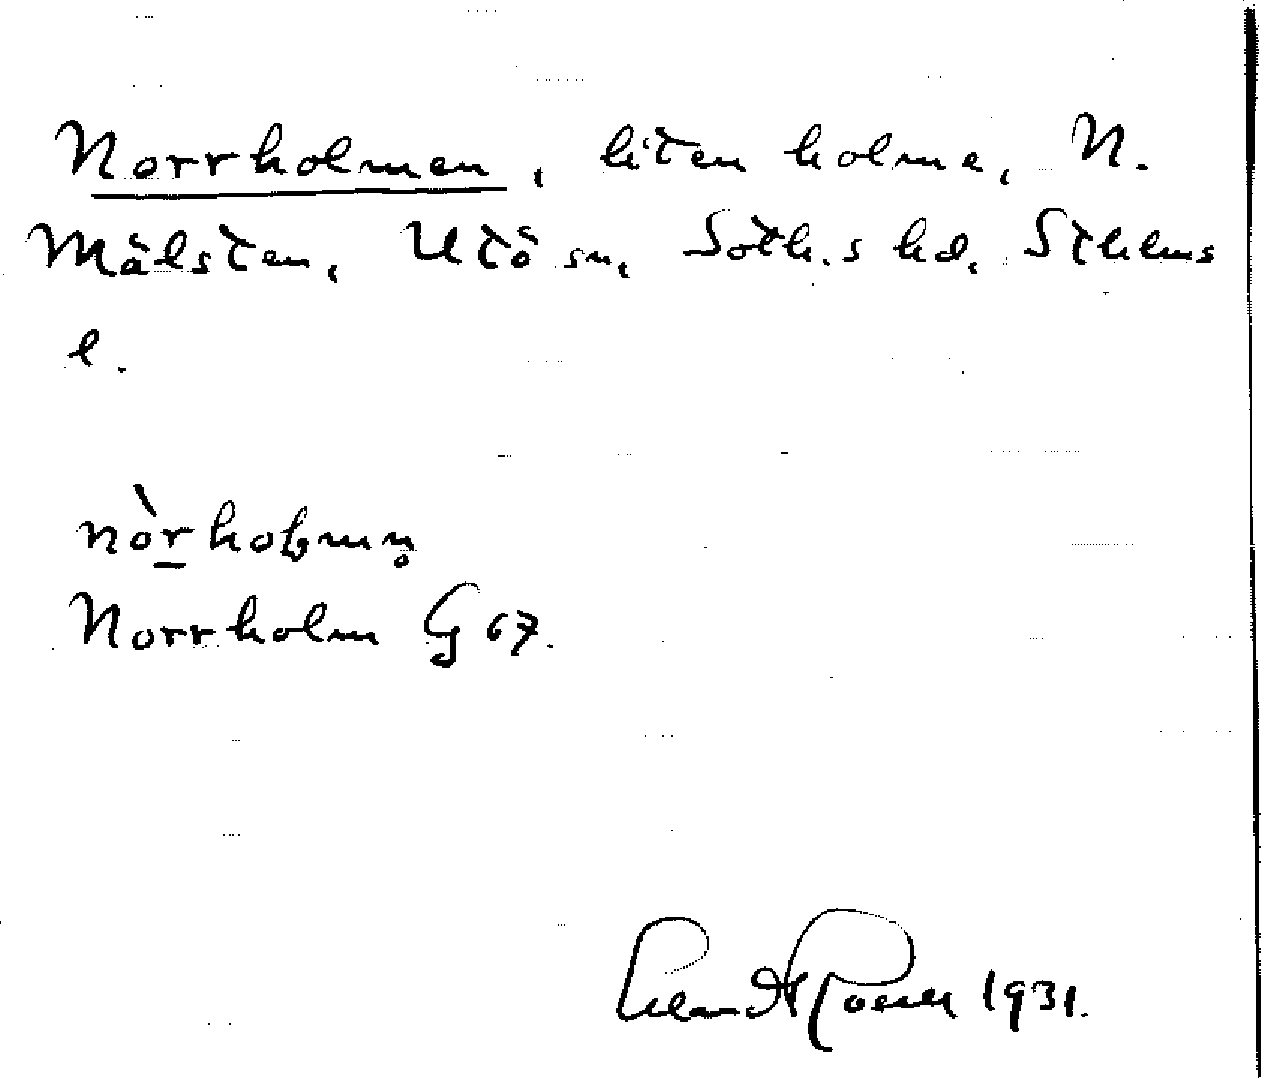 Norrholmen, liten holme, N.
Målsten, Utö sn, Soth.s hd, Sthlms
l.
nòrhołmn̥
Norrholm G 67.
1931.